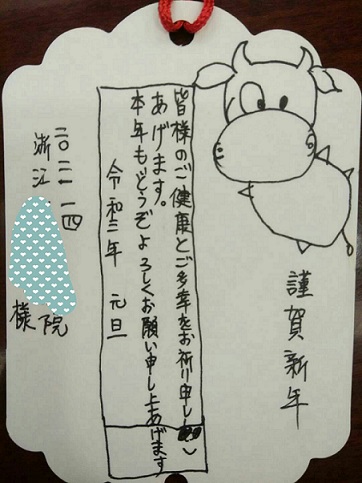 謹賀新年
皆様のご健康とご多幸をお祈り申し
あげます。
本年もどうぞよろしくお願い申し上あげます
令和三年 元旦
二〇二一 一 四
浙江
院
様